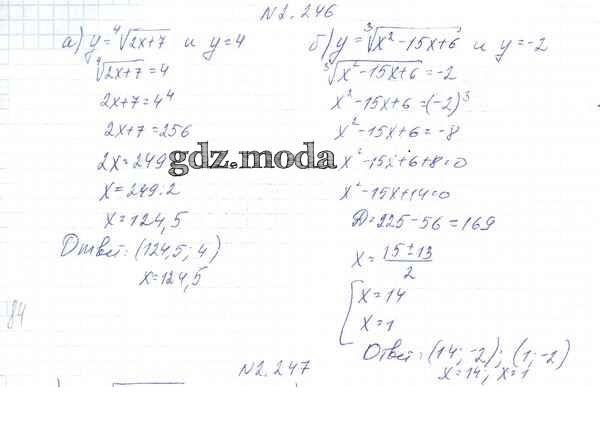 N2.246
а) y = ⁴√2x+7 и y = 4
⁴√2x+7 = 4
2x+7 = 4⁴
2x+7 = 256
2x = 249
x = 249:2
x = 124,5
Ответ: (124,5; 4)
x = 124,5
б) y = ³√x²-15x+6 и y = -2
³√x²-15x+6 = -2
x²-15x+6 = (-2)³
x²-15x+6 = -8
x²-15x+6+8=0
x²-15x+14=0
D=225-56=169
x = 15±13/2
[x = 14
x = 1
Ответ: (14; -2); (1; -2)
x=14; x=1
gdz.moda
84
N2.247